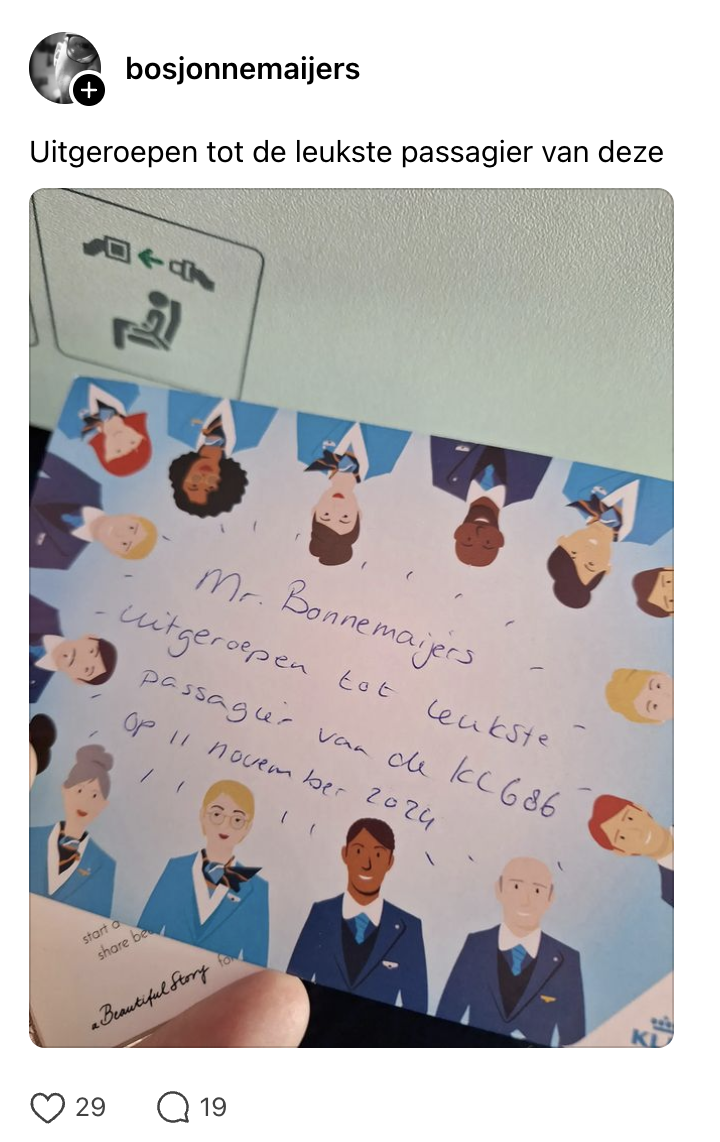 bosjonnemaijers
Uitgeroepen tot de leukste passagier van deze
Mr. Bonnemaijers
uitgeroepen tot leukste
passagier van de KL686
op 11 november 2024
start a
share
a Beautiful Story
KL
29
19